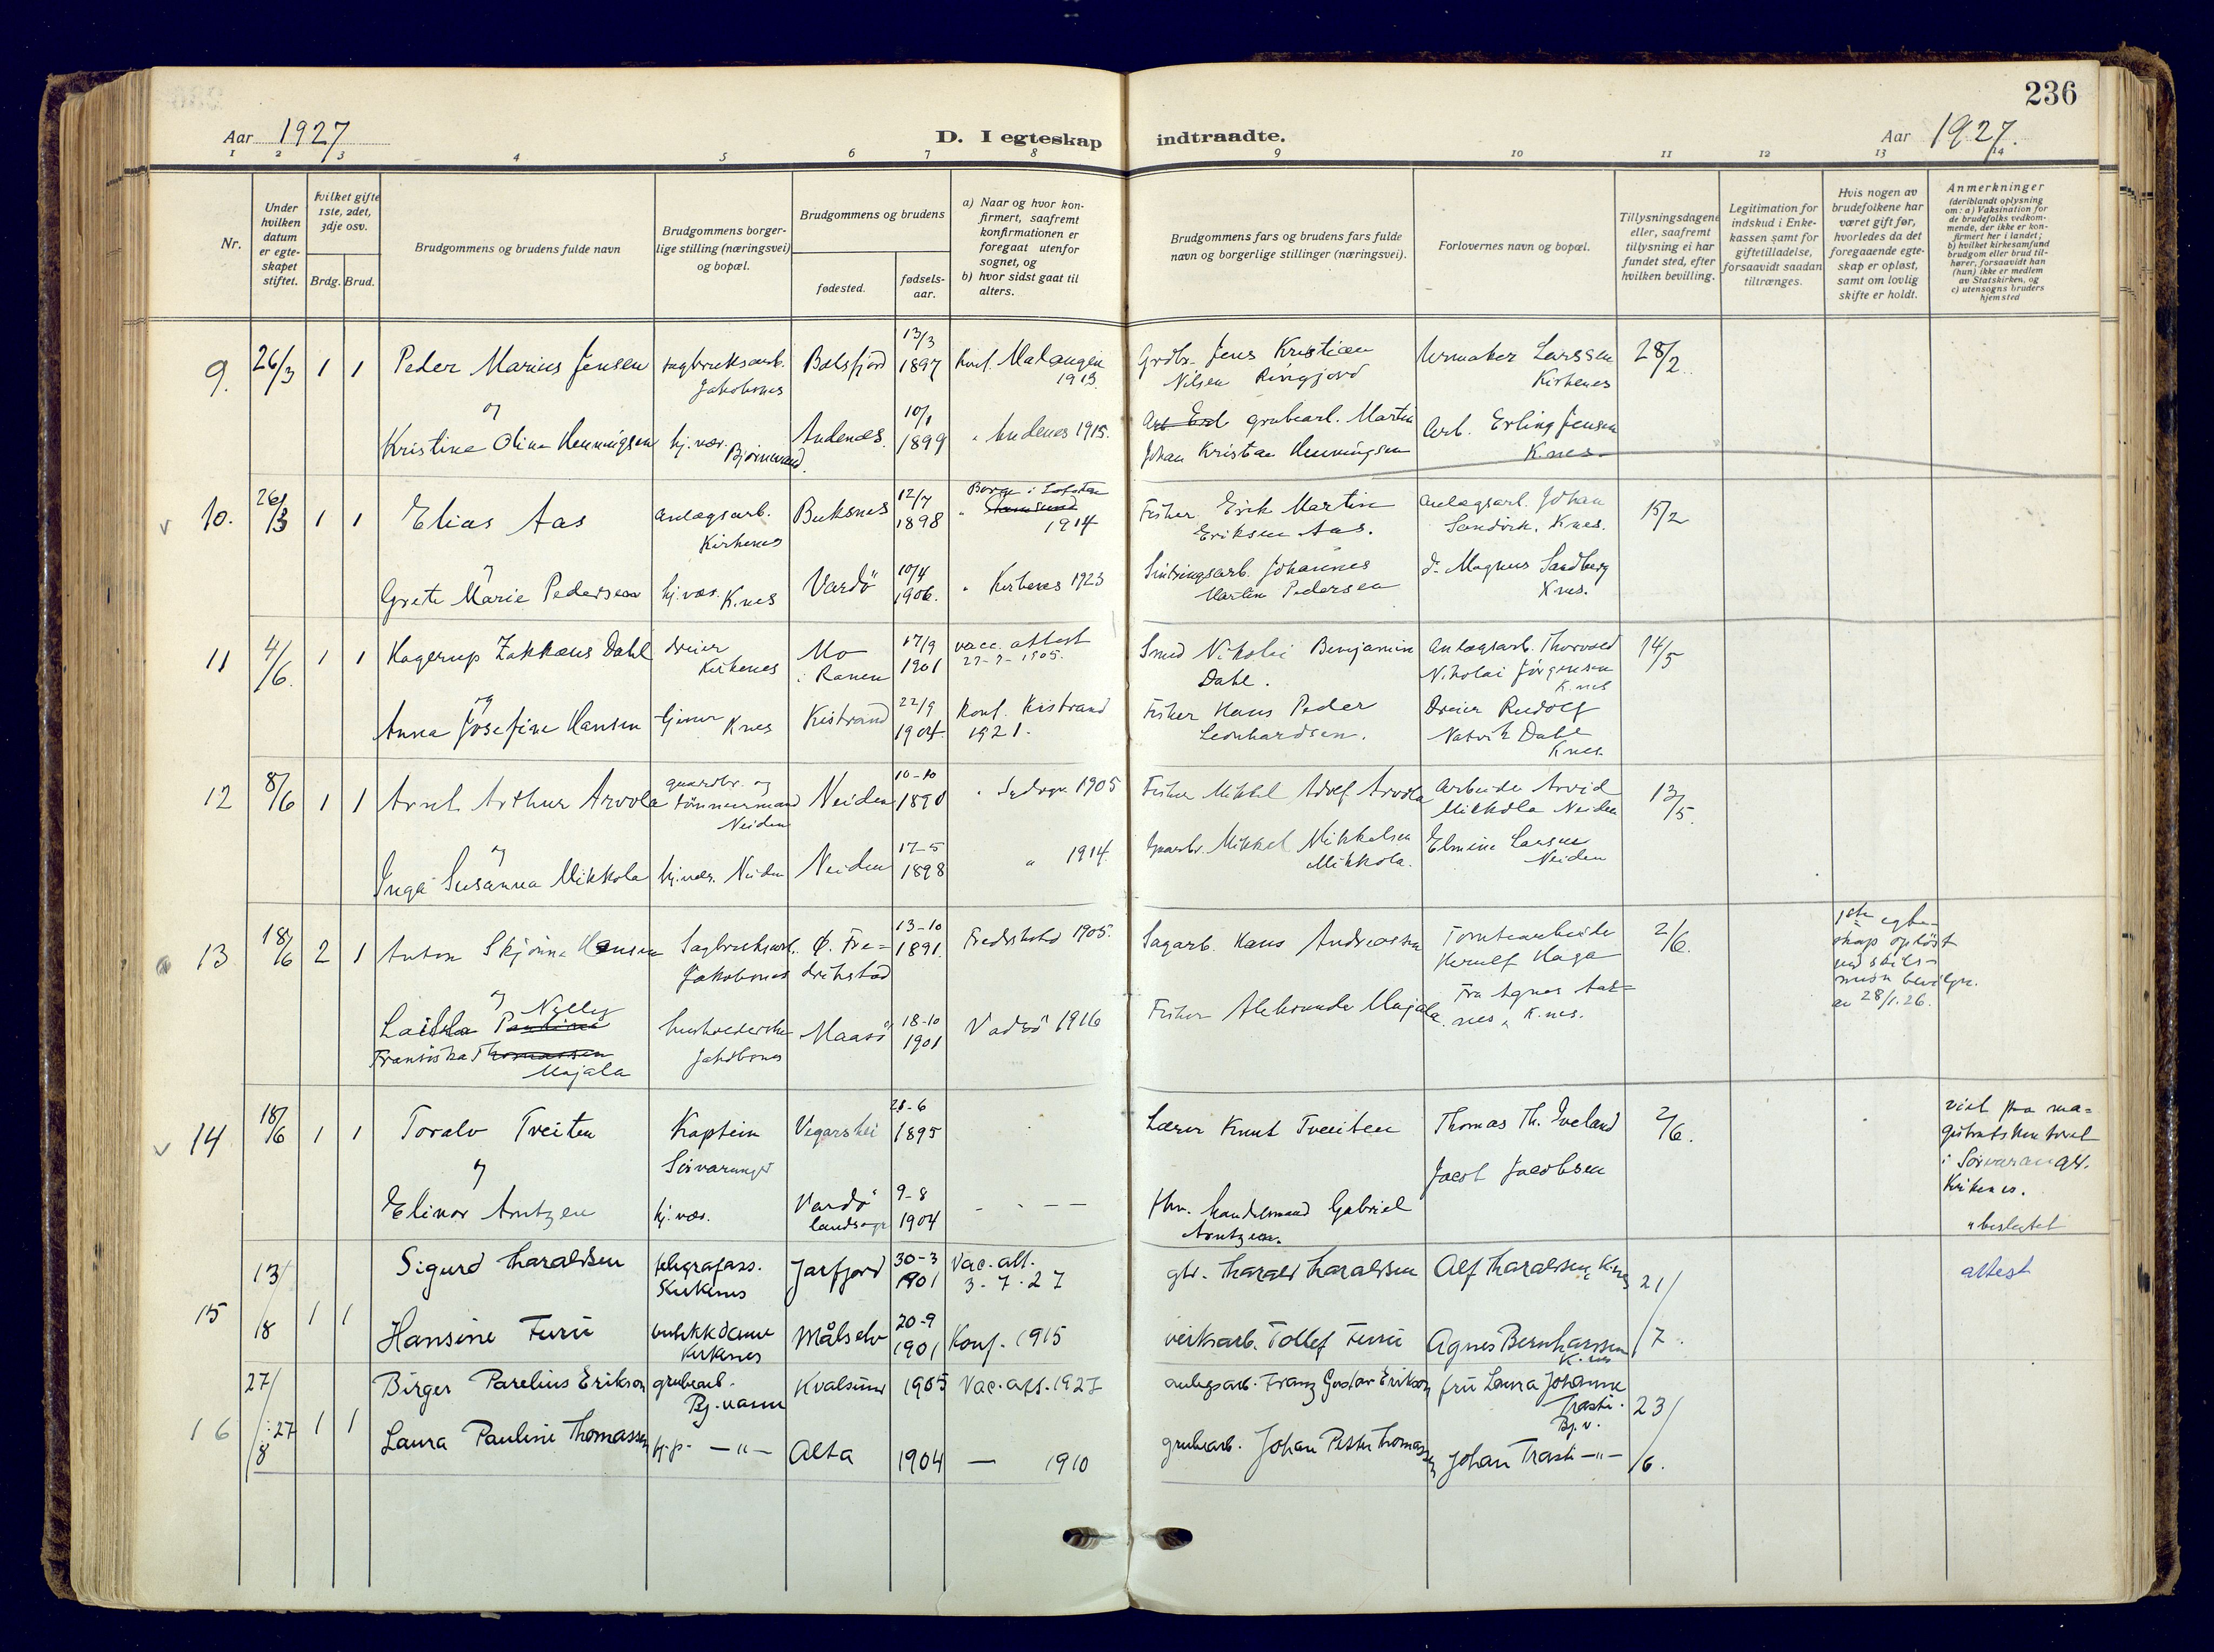 236
Aar 1927
D. I egteskap indtraadte.
Aar 1927.
1 2 3 4 5 6 7 8 9 10 11 12 13 14
Nr.
Under hvilken datum er egte-skapet stiftet.
Hvilket gifte 1ste, 2det, 3dje osv.
Brdg. Brud.
Brudgommens og brudens fulde navn
Brudgommens borger-lige stilling (næringsvei) og bopæl.
Brudgommens og brudens
fødested.
fødsels-aar.
a) Naar og hvor kon-firmert, saafremt konfirmationen er foregaat utenfor sognet, og
b) hvor sidst gaat til alters.
Brudgommens fars og brudens fars fulde navn og borgerlige stillinger (næringsvei).
Forlovernes navn og bopæl.
Tillysningsdagene eller, saafremt tillysning ei har fundet sted, efter hvilken bevilling.
Legitimation for indskud i Enke-kassen samt for giftetilladelse, forsaavidt saadan tiltrænges.
Hvis nogen av brudefolkene har været gift før, hvorledes da det foregaaende egte-skap er opløst, samt om lovlig skifte er holdt.
Anmerkninger (deriblandt oplysning om: a) Vaksination for de brudefolks vedkom-mende, der ikke er kon-firmert her i landet; b) hvilket kirkesamfund brudgom eller brud til-hører, forsaavidt han (hun) ikke er medlem av Statskirken, og c) utensogns bruders hjemsted
9. 26/3 1 1 Peder Marius Jensen sagbruksarb. Jakobsnes Balsfjord 13/3 1897 Konf. Malangen 1913. Grdbr. Jens Kristian Nilsen Ringjord Urmaker Larssen Kirkenes 28/2
og
Kristine Olina Henningsen hj. vær. Bjørnevand. Andenes. 10/1 1899 " Andenes 1915. grubearb. Martin Johan Kristian Henningsen Arb. Erling Jensen K.nes
v 10. 26/3 1 1 Elias Aas anlægsarb. Kirkenes Buksnes 12/7 1898 Borge i Lofoten Stamsund 1914 Fisker Erik Martin Eriksen Aas. Anlægsarb. Johan Sandvik. Knes. 15/2
og
Grete Marie Pedersen hj. væs. K.nes Vardö 10/4 1906. " Kirkenes 1923 Sintringsarb. Johannes Martin Pedersen do Magnus Sandberg Knes.
11 4/6. 1 1 Hagerup Zakkæus Dahl dreier Kirkenes Mo i Ranen 17/9 1901 vacc. attest 27-7-1905. Smed Nikolai Benjamin Dahl. Anlægsarb. Thorvald Nikolai Jørgensen K.nes 14/5
og
Anna Josefine Hansen tjener Knes Kistrand 22/9 1904. Konf. Kistrand 1921. Fisker Hans Peder Leonhardsen. Dreier Rudolf Natvik Dahl Knes.
12 8/6 1 1 Arnt Arthur Arvola gaardbr. og tømmermand Neiden Neiden 10-10 1890 " 1905 Fisker Mikkel Adolf Arvola Arbeider Arvid Mikkola Neiden 13/5.
og
Inga Susanna Mikkola hj. vær. Neiden Neiden 17-5 1898 " 1914. Gaardbr. Mikkel Mikkelsen Mikkola. Elmine Larsen Neiden
13 18/6 2 1 Anton Skjønne Hansen Sagbruksarb. Jakobsnes Ø. Fre-drikstad 13-10 1891. Fredrikstad 1905. Sagarb. Hans Andreassen Tomtearbeider Herulf Haga 2/6. 1ste egte-skap opløst ved skils-misse bevilgn. av 28/1.26.
og
Nelly
Laila Pauline Fransiska Thomassen Majala husholderske Jakobsnes Maasö 18-10 1901 Vadsö 1916 Fisker Aleksander Majala. Fru Agnes Aar-nes, K.nes.
v 14 18/6 1 1 Toralv Treiten Kaptein Sörvaranger Vegarshei 28-6 1895 Lærer Knut Tveiten Thomas Th. Sveland 2/6. viet paa ma-gistratskontoret i Sörvaranger. Kirkenes.
og
Elinor Arntzen hj. væs. Vardö landsogn 9-8 1904 - - - - fhv. Handelsmand Gabriel Arntzen. Jacob Jacobsen ubeslegtet
15 13/18 1 1 Sigurd Haraldsen telegrafass. Kirkenes Jarfjord 30-3 1901 Vac. att. 3-7-27 gbr. Harald Haraldsen Alf Haraldsen K.nes 21/7. attest
Hansine Furu butikkdame Kirkenes Målselv 20-9 1901 Konf. 1915 verksarb. Tollef Furu Agnes Bernhardsen K.nes
16 27/8 27 1 1 Birger Parelius Erikson grubearb. Bj. vann Kvalsund 1905 Vac. att. 1927 anlegsarb. Franz Gustav Erikson fru Laura Johanne Trasti. Bj. v. 23/6.
Laura Pauline Thomassen hj. p. -"- Alta 1904 — 1910 grubearb. Johan Petter Thomassen Johan Trasti -"-